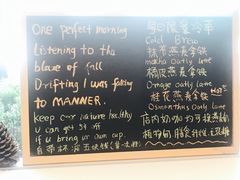 One perfect morning
listening to the
blaze of fall
Drifting I was falling
to MANNER.
keep our nature healthy
u can get 5¥ off
if u bring ur own cup.
自带杯减五块钱
Cold Brew
抹茶燕麦拿铁
matcha oatly latte
橘皮燕麦拿铁
Orange oatly latte
桂花燕麦拿铁
HOT
Osmanthus Oatly latte
店内奶咖均可换燕麦
植物奶